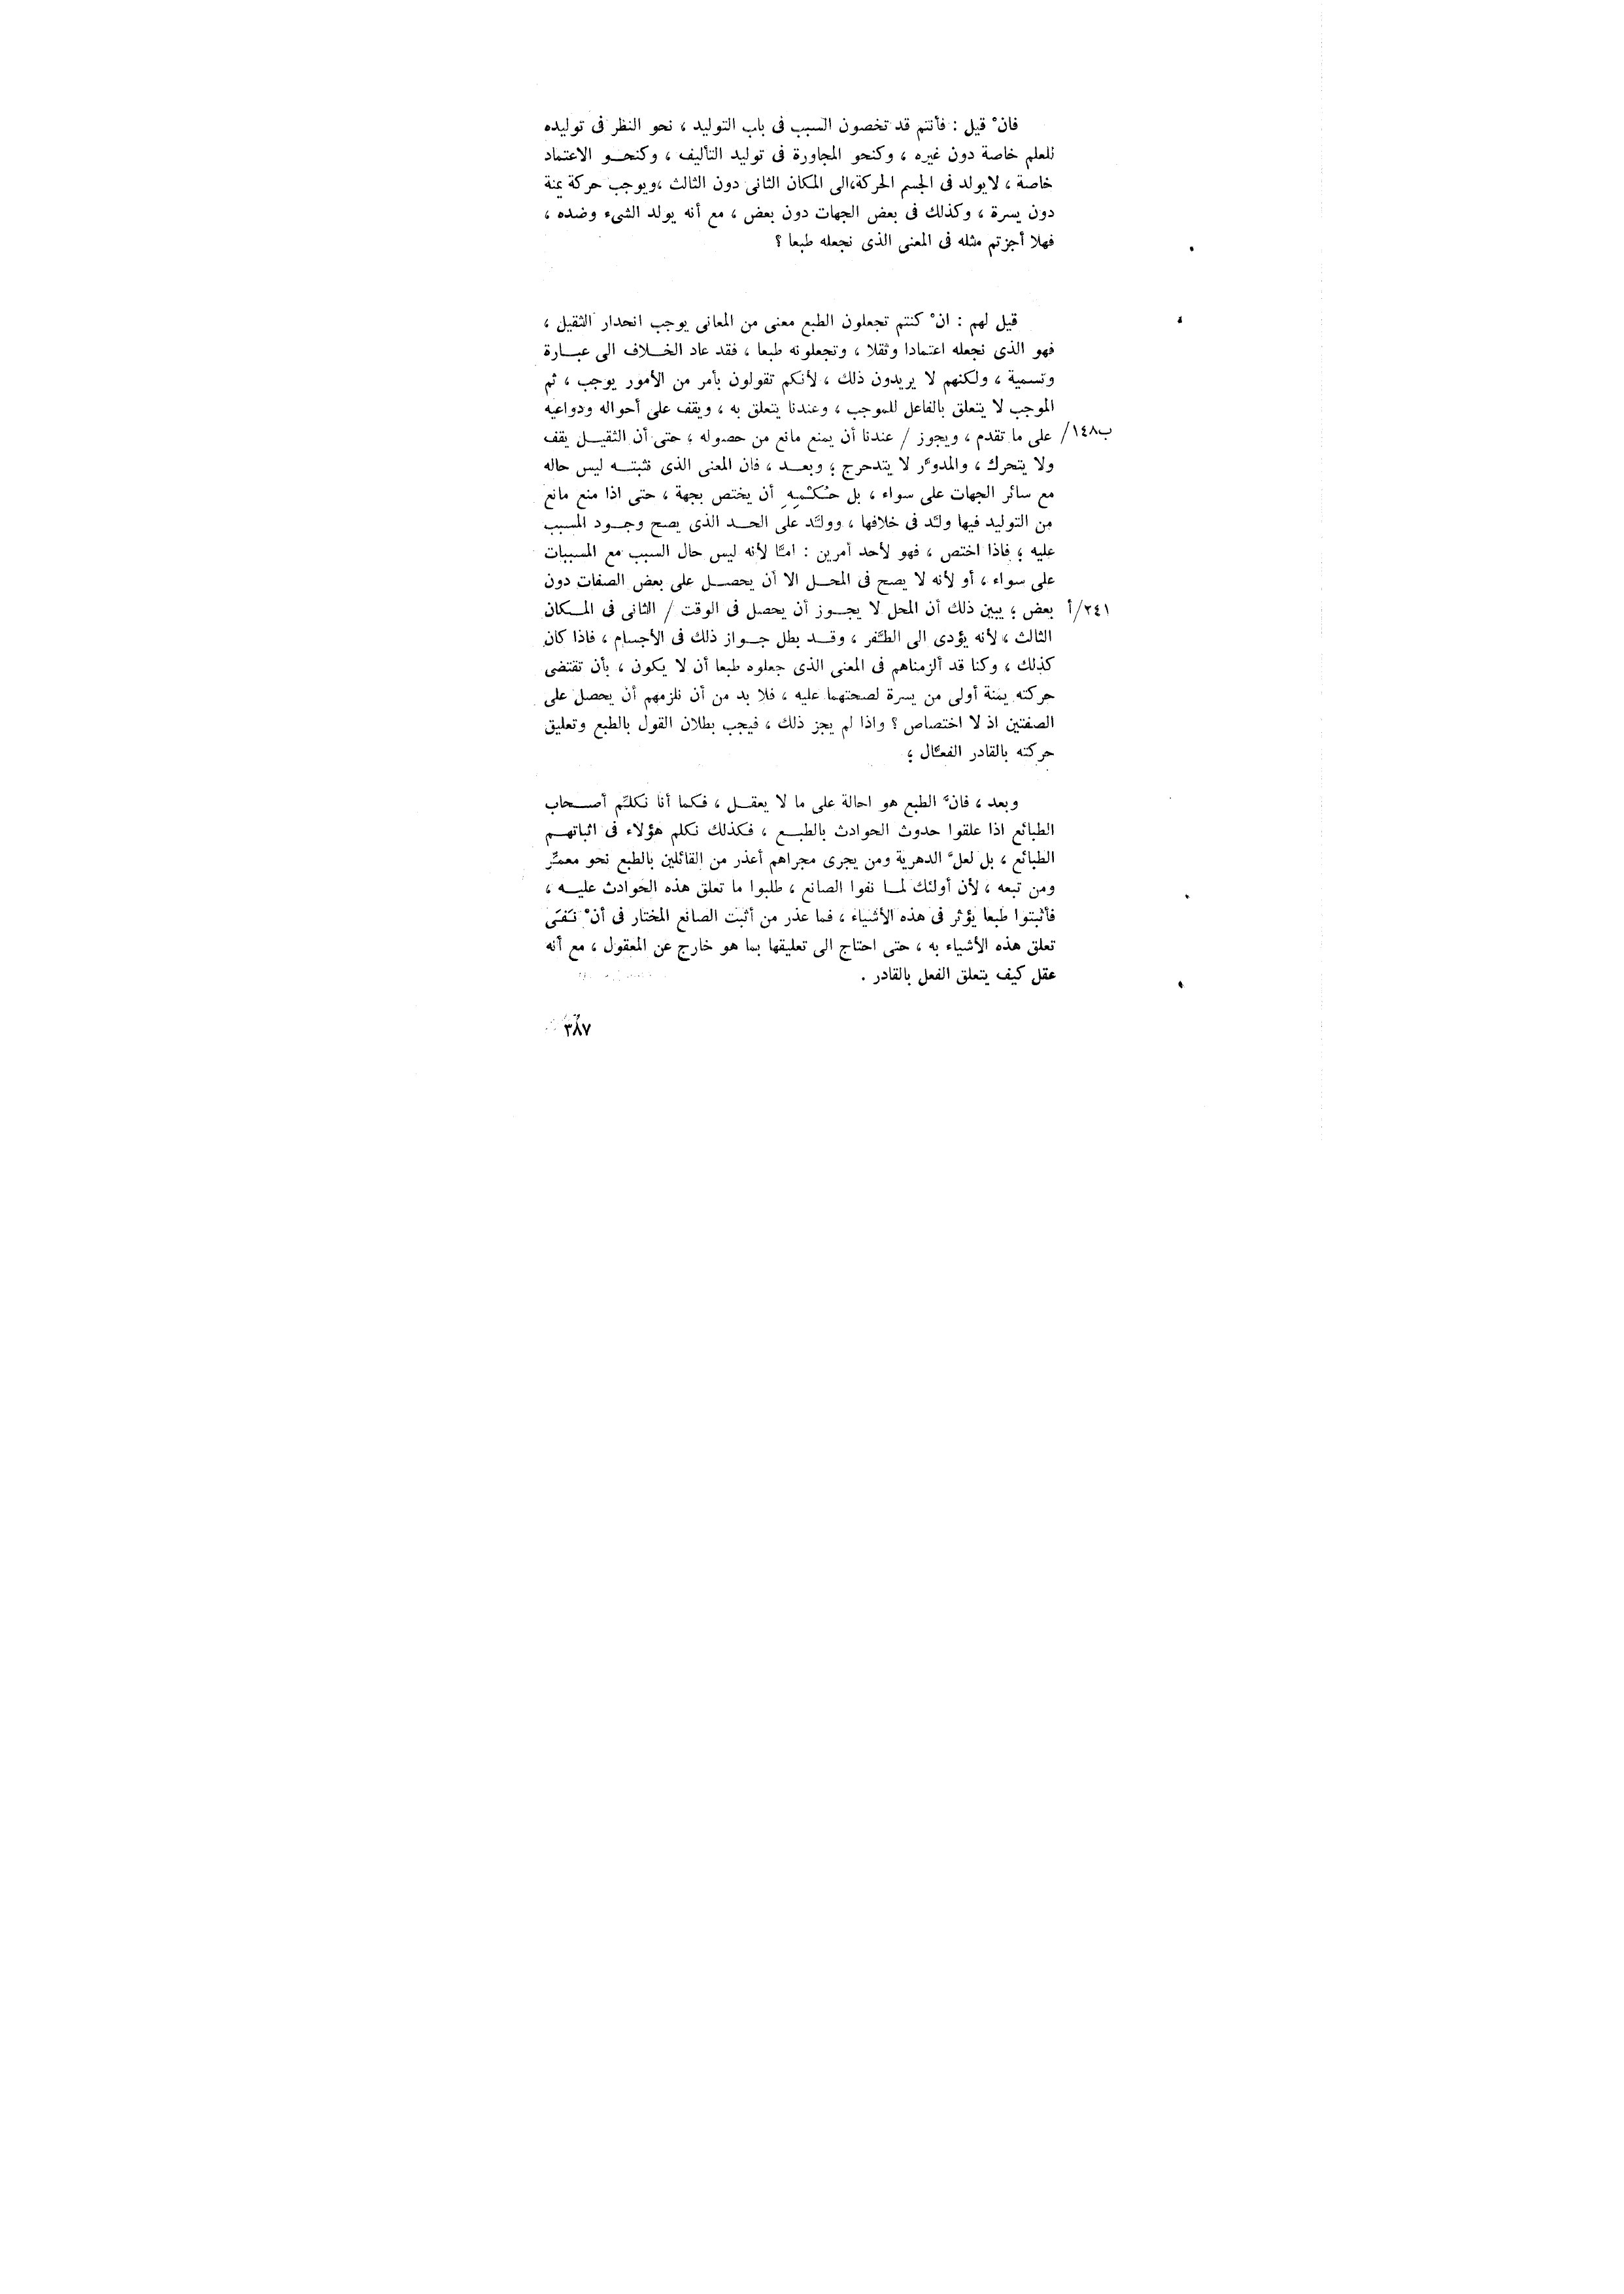 فانْ قيل : فأنتم قد تخصون السبب فى باب التوليد ، نحو النظر فى توليده
للعلم خاصة دون غيره ، وكنحو المجاورة فى توليد التأليف ، وكنحو الاعتماد
خاصة ، لايولد فى الجسم الحركة،الى المكان الثانى دون الثالث ،ويوجب حركة يمنة
دون يسرة ، وكذلك فى بعض الجهات دون بعض ، مع أنه يولد الشىء وضده ،
فهلا أجزتم مثله فى المعنى الذى نجعله طبعا ؟
قيل لهم : انْ كنتم تجعلون الطبع معنى من المعانى يوجب انحدار الثقيل ،
فهو الذى نجعله اعتمادا وثقلا ، وتجعلونه طبعا ، فقد عاد الخلاف الى عبارة
وتسمية ، ولكنهم لا يريدون ذلك ، لأنكم تقولون بأمر من الأمور يوجب ، ثم
الموجب لا يتعلق بالفاعل للموجب ، وعندنا يتعلق به ، ويقف على أحواله ودواعيه
ب١٤٨/ على ما تقدم ، ويجوز / عندنا أن يمنع مانع من حصوله ؛ حتى أن الثقيل يقف
ولا يتحرك ، والمدوَّر لا يتدحرج ؛ وبعد ، فان المعنى الذى نثبته ليس حاله
مع سائر الجهات على سواء ، بل حُكْمِهِ أن يختص بجهة ، حتى اذا منع مانع
من التوليد فيها ولَّد فى خلافها ، وولَّد على الحد الذى يصح وجود المسبب
عليه ؛ فاذا اختص ، فهو لأحد أمرين : امَّا لأنه ليس حال السبب مع المسببات
على سواء ، أو لأنه لا يصح فى المحل الا أن يحصل على بعض الصفات دون
٢٤١/أ بعض ؛ يبين ذلك أن المحل لا يجوز أن يحصل فى الوقت / الثانى فى المكان
الثالث ، لأنه يؤدى الى الطَّفر ، وقد بطل جواز ذلك فى الأجسام ، فاذا كان
كذلك ، وكنا قد ألزمناهم فى المعنى الذى جعلوه طبعا أن لا يكون ، بأن تقتضى
حركته يمنة أولى من يسرة لصحتهما عليه ، فلا بد من أن نلزمهم أن يحصل على
الصفتين اذ لا اختصاص ؟ واذا لم يجز ذلك ، فيجب بطلان القول بالطبع وتعليق
حركته بالقادر الفعَّال ؛
وبعد ، فانَّ الطبع هو احالة على ما لا يعقل ، فكما أنا نكلِّم أصحاب
الطبائع اذا علقوا حدوث الحوادث بالطبع ، فكذلك نكلم هؤلاء فى اثباتهم
الطبائع ، بل لعلَّ الدهرية ومن يجرى مجراهم أعذر من القائلين بالطبع نحو معمَّر
ومن تبعه ، لأن أولئك لما نفوا الصانع ، طلبوا ما تعلق هذه الحوادث عليه ،
فأثبتوا طبعا يؤثر فى هذه الأشياء ، فما عذر من أثبت الصانع المختار فى أنْ نَفَى
تعلق هذه الأشياء به ، حتى احتاج الى تعليقها بما هو خارج عن المعقول ، مع أنه
عقل كيف يتعلق الفعل بالقادر .
٣٨٧